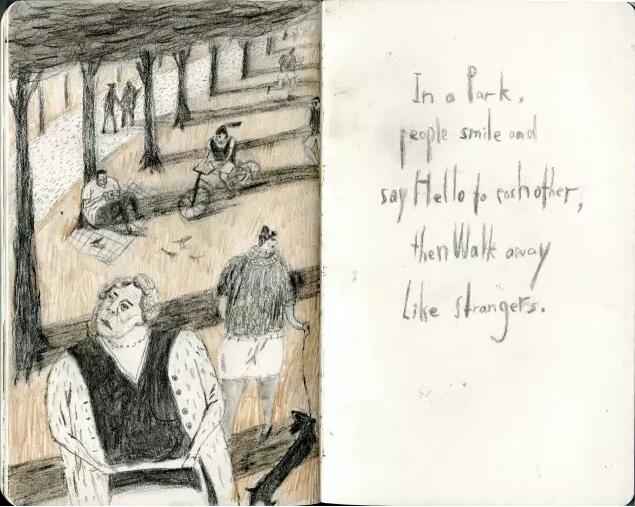 In a Park,
people smile and
say Hello to each other,
then Walk away
Like strangers.